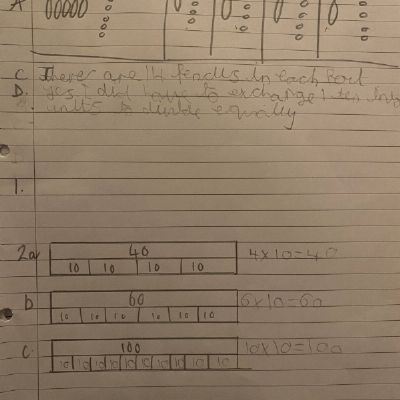 A 00000 0 0 0 0
C There are 14 pencils in each Port
D. yes I did have to exchange 1 ten into
units to divide equally
1.
2a 40 4x10=40
10 10 10 10
b 60 6x10=60
10 10 10 10 10 10
c. 100 10x10=100
10 10 10 10 10 10 10 10 10